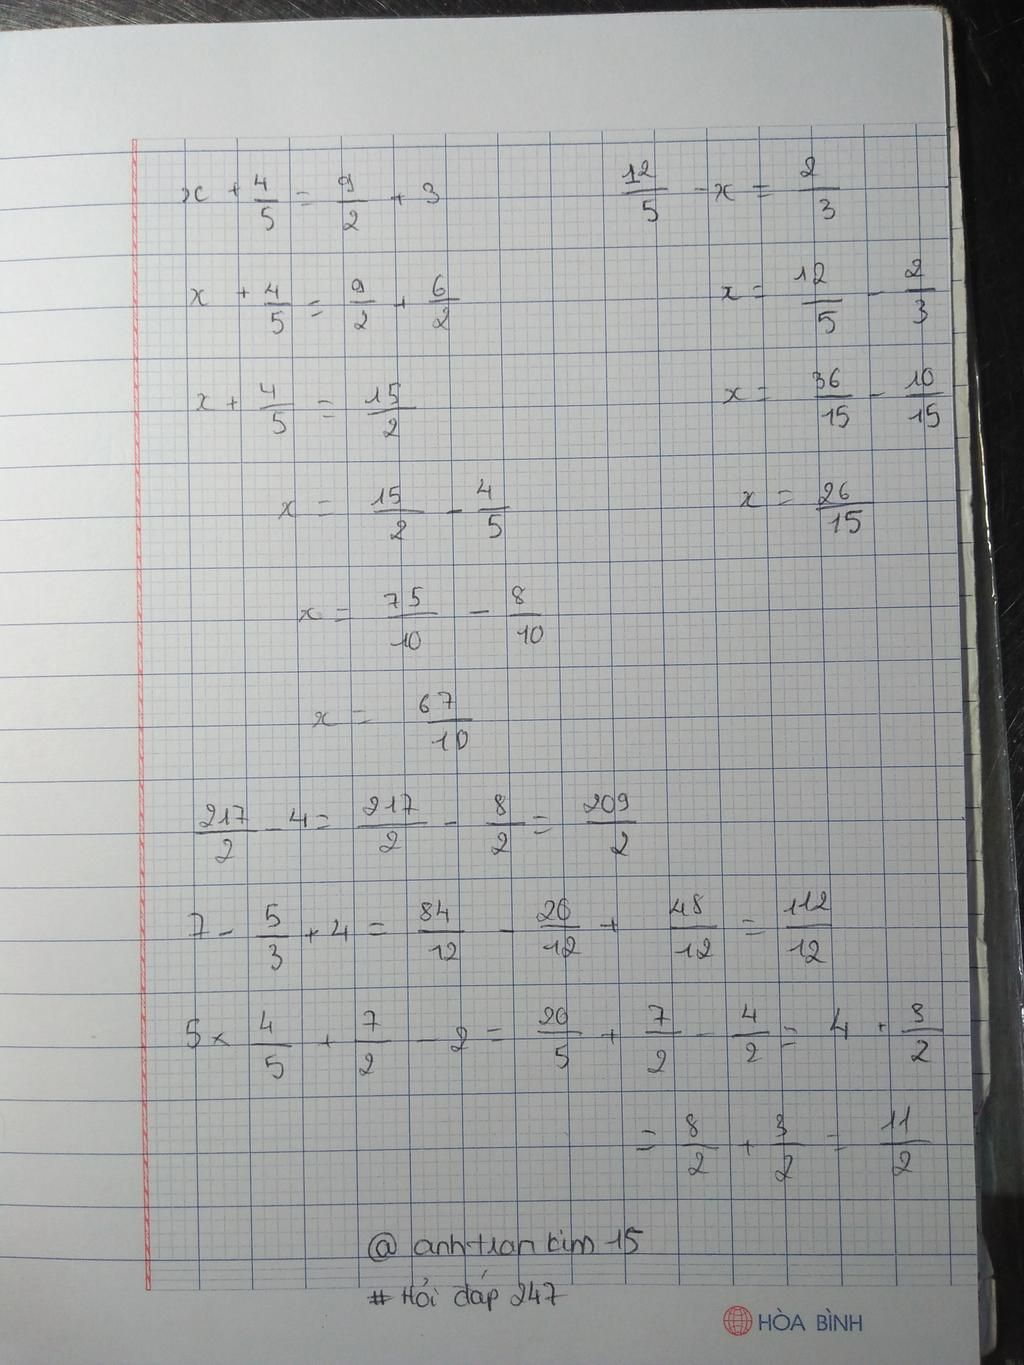 x + 4/5 = 9/2 + 3
x + 4/5 = 9/2 + 6/2
x + 4/5 = 15/2
x = 15/2 - 4/5
x = 75/10 - 8/10
x = 67/10
12/5 - x = 2/3
x = 12/5 - 2/3
x = 36/15 - 10/15
x = 26/15
217/2 - 4 = 217/2 - 8/2 = 209/2
7 - 5/3 + 4 = 84/12 - 20/12 + 48/12 = 112/12
5 × 4/5 + 7/2 - 2 = 20/5 + 7/2 - 4/2 = 4 + 3/2
= 8/2 + 3/2 = 11/2
@ anhtrankim15
# Hỏi đáp 247
HÒA BÌNH